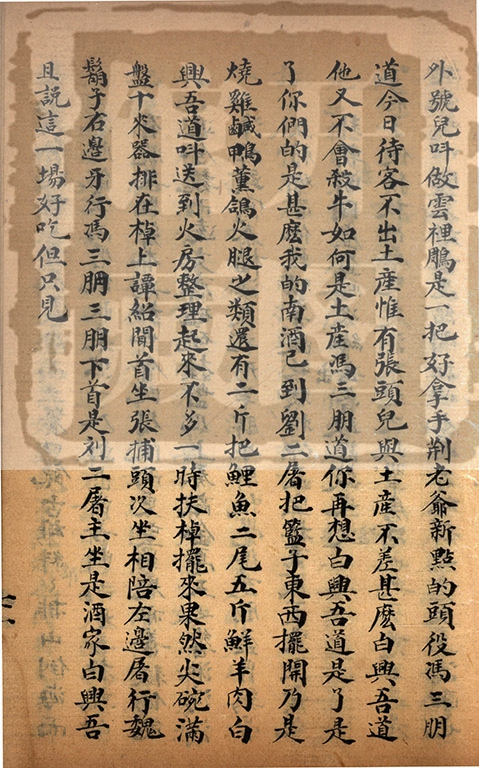 外號兒呌做雲裡鵰是一把好拿手荆老爺新點的頭役馮三朋
道今日待客不出土產惟有張頭兒與土產不差甚麽白興吾道
他又不會殺牛如何是土産馮三朋道你再想白興吾道是了是
了你們的是甚麽我的南酒已到劉二屠把籃子東西擺開乃是
燒雞鹹鴨薰鴿火腿之類還有二斤把鯉魚二尾五斤鮮羊肉白
興吾道呌送到火房整理起來不多一時扶棹擺來果然尖碗滿
盤十來器排在棹上譚紹聞首坐張捕頭次坐相陪左邉屠行魏
鬍子右邉牙行馮三朋三朋下首是刘二屠主坐是酒家白興吾
且説這一塲好吃但只見